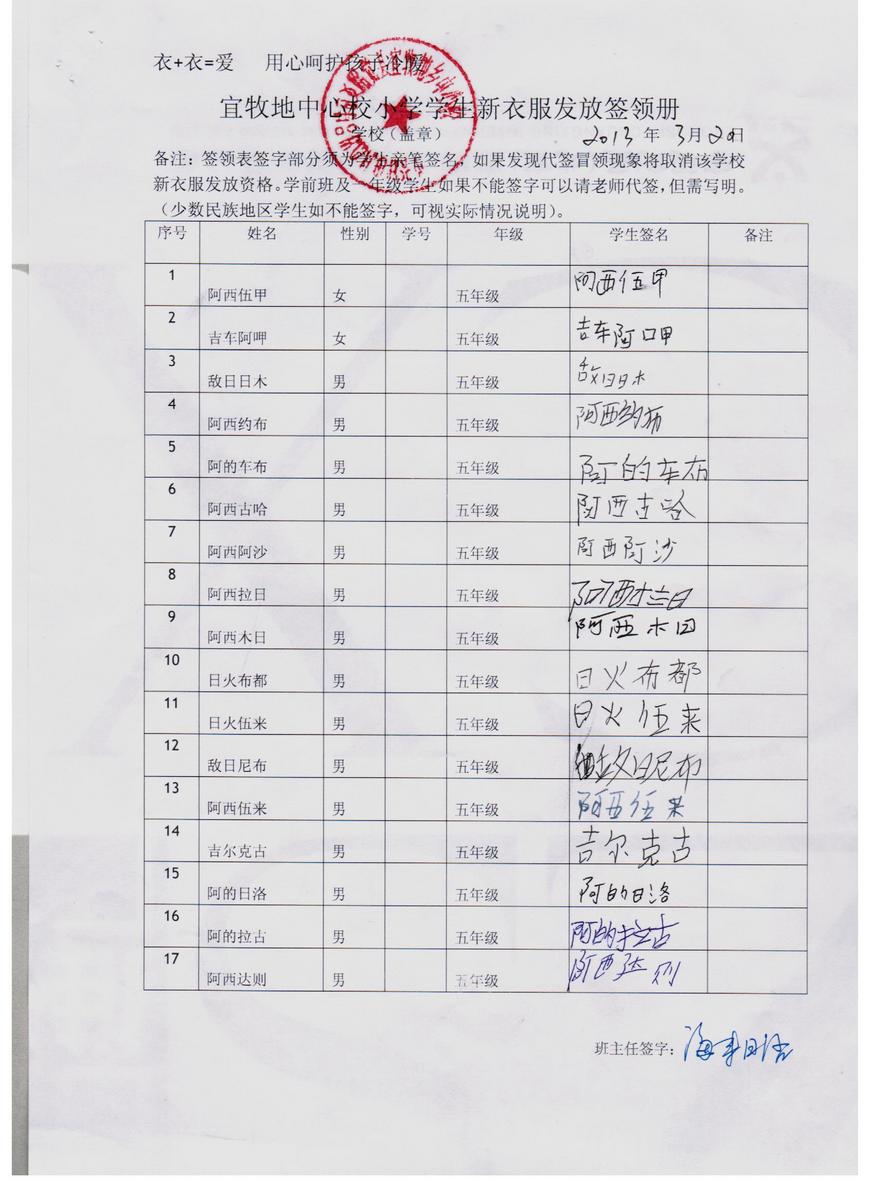 衣+衣=爱 用心呵护孩子冷暖
宜牧地中心校小学学生新衣服发放签领册
学校（盖章） 2013 年 3月20日
备注：签领表签字部分须为学生亲笔签名，如果发现代签冒领现象将取消该学校
新衣服发放资格。学前班及一年级学生如果不能签字可以请老师代签，但需写明。
（少数民族地区学生如不能签字，可视实际情况说明）。
序号 姓名 性别 学号 年级 学生签名 备注
1 阿西伍甲 女 五年级 阿西伍甲
2 吉车阿呷 女 五年级 吉车阿呷
3 敌日日木 男 五年级 敌日日木
4 阿西约布 男 五年级 阿西约布
5 阿的车布 男 五年级 阿的车布
6 阿西古哈 男 五年级 阿西古哈
7 阿西阿沙 男 五年级 阿西阿沙
8 阿西拉日 男 五年级 阿西拉日
9 阿西木日 男 五年级 阿西木日
10 日火布都 男 五年级 日火布都
11 日火伍来 男 五年级 日火伍来
12 敌日尼布 男 五年级 敌日尼布
13 阿西伍来 男 五年级 阿西伍来
14 吉尔克古 男 五年级 吉尔克古
15 阿的日洛 男 五年级 阿的日洛
16 阿的拉古 男 五年级 阿的拉古
17 阿西达则 男 五年级 阿西达则
班主任签字：海来日